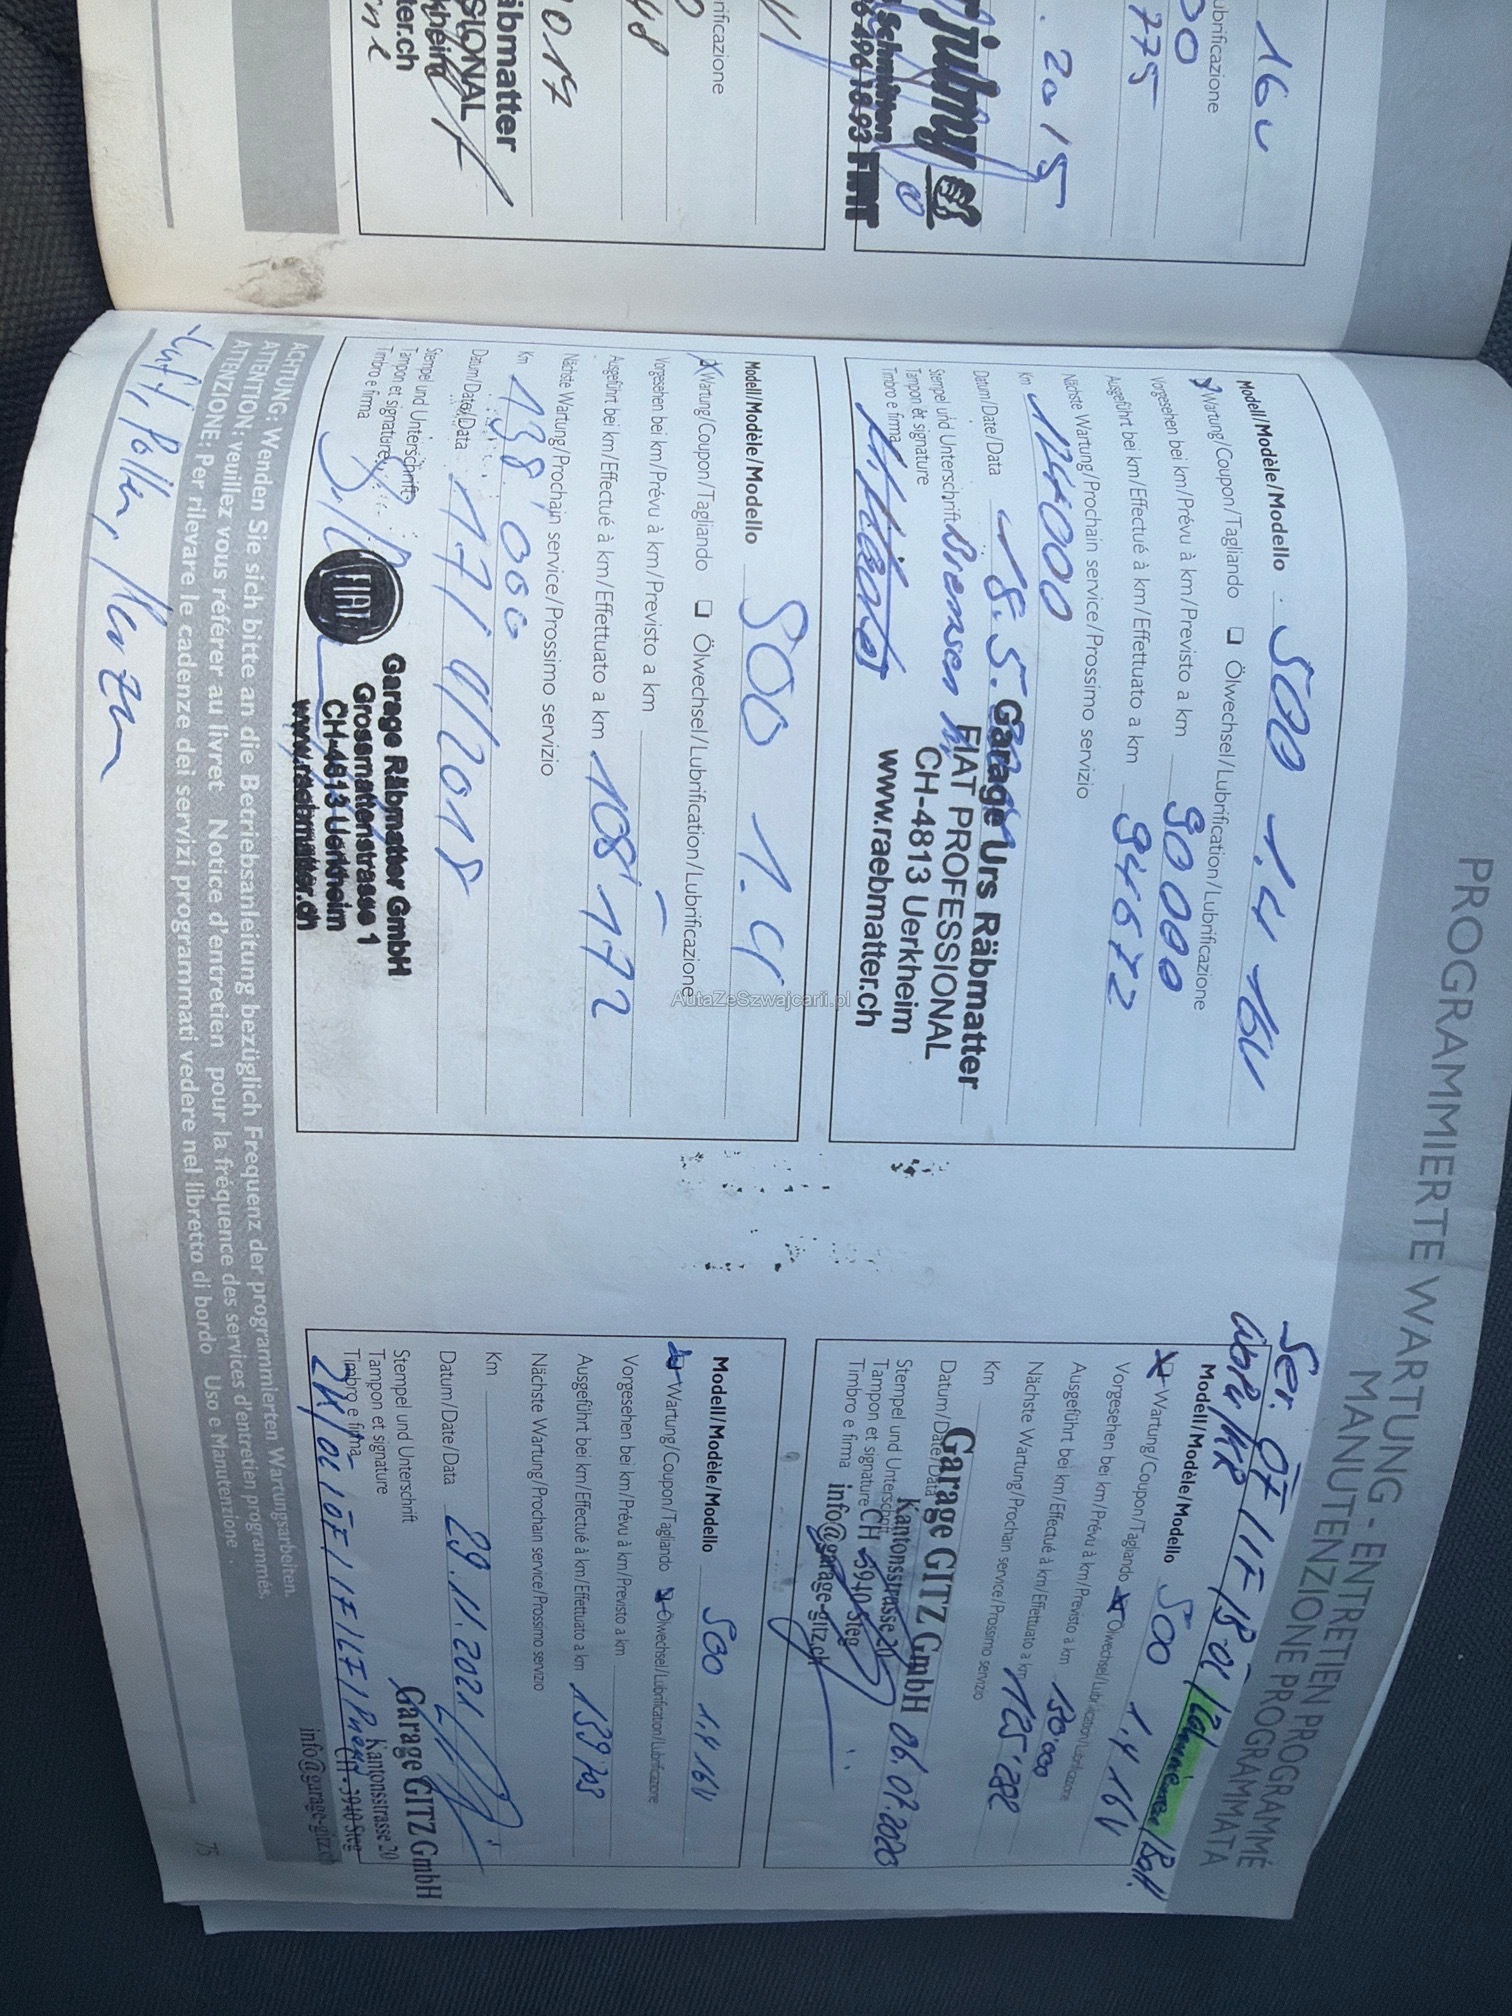 PROGRAMMIERTE WARTUNG - ENTRETIEN PROGRAMMÉ
MANUTENZIONE PROGRAMMATA
16v
ubrificazione
00
775
. 2015
julmy
Schmitten
rificazione
48
2017
äbmatter
SIONAL
kheim
ter.ch
Modell/Modèle/Modello 500 1.4 16V
Wartung/Coupon/Tagliando ❑ Ölwechsel/Lubrification/Lubrificazione
Vorgesehen bei km/Prévu à km/Previsto a km 90 000
Ausgeführt bei km/Effectué à km/Effettuato a km 94672
Nächste Wartung/Prochain service/Prossimo servizio
Km 124000
Datum/Date/Data 18.5.
Stempel und Unterschrift Bremsen
Tampon et signature
Timbro e firma
Garage Urs Räbmatter
FIAT PROFESSIONAL
CH-4813 Uerkheim
www.raebmatter.ch
Modell/Modèle/Modello 500 1.4
Wartung/Coupon/Tagliando ❑ Ölwechsel/Lubrification/Lubrificazione
Vorgesehen bei km/Prévu à km/Previsto a km
Ausgeführt bei km/Effectué à km/Effettuato a km 108'172
Nächste Wartung/Prochain service/Prossimo servizio
Km 138'000
Datum/Date/Data 17/9/2018
Stempel und Unterschrift
Tampon et signature
Timbro e firma
FIAT
Garage Räbmatter GmbH
Grossmattenstrasse 1
CH-4813 Uerkheim
www.raebmatter.ch
Modell/Modèle/Modello 500 1.4 16V
Wartung/Coupon/Tagliando Ölwechsel/Lubrification/Lubrificazione
Vorgesehen bei km/Prévu à km/Previsto a km 150.000
Ausgeführt bei km/Effectué à km/Effettuato a km 125'282
Nächste Wartung/Prochain service/Prossimo servizio
Km
Datum/Date/Data 06.07.2020
Stempel und Unterschrift
Tampon et signature
Timbro e firma
Garage GITZ GmbH
Kantonsstrasse 20
CH-3940 Steg
info@garage-gitz.ch
Modell/Modèle/Modello 500 1.4 16V
Wartung/Coupon/Tagliando Ölwechsel/Lubrification/Lubrificazione
Vorgesehen bei km/Prévu à km/Previsto a km
Ausgeführt bei km/Effectué à km/Effettuato a km 139 703
Nächste Wartung/Prochain service/Prossimo servizio
Km
Datum/Date/Data 29.11.2021
Stempel und Unterschrift
Tampon et signature
Timbro e firma
Garage GITZ GmbH
Kantonsstrasse 20
CH-3940 Steg
info@garage-gitz.ch
ACHTUNG: Wenden Sie sich bitte an die Betriebsanleitung bezüglich Frequenz der programmierten Wartungsarbeiten.
ATTENTION: veuillez vous référer au livret Notice d'entretien pour la fréquence des services d'entretien programmés.
ATTENZIONE: Per rilevare le cadenze dei servizi programmati vedere nel libretto di bordo Uso e Manutenzione.
Luft, Pollen, Kerzen
75
AutaZeSzwajcarii.pl